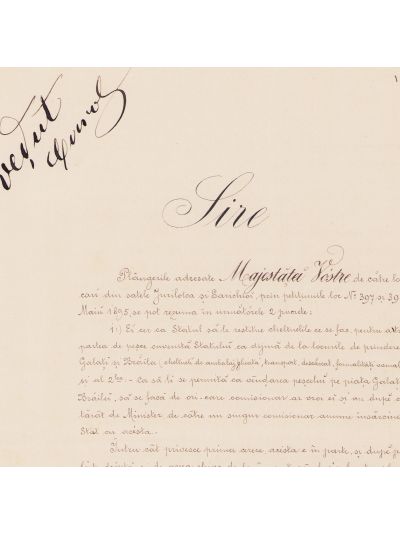 vețut
Carol
1
Sire
Plângerile adresate Majestăței Vóstre de către lo
cari din satele Jurilofca și Sarichioi, prin petițiunile lor Nº 397 și 39
Maiŭ 1895, se pot resuma în următórele 2 puncte:
1:) Ei cer ca Statul să le restitue cheltuelile ce se fac, pentru
partea de pesce cuvenită Statului ca dijmă de la locurile de prindere
Galați și Brăila (cheltueli de ambalaj, ghiață, transport, descărcat, formalități
și al 2lea - Ca să li se permită ca vîndarea pescelui pe piața Galaț
Brăilei, să se facă de ori-care comisionar ar vroi ei și nu după c
tărît de Minister de către un singur comisionar anume însărcin
Stat cu acésta.
Întru cât privesce prima cerere, acésta e în parte, și după